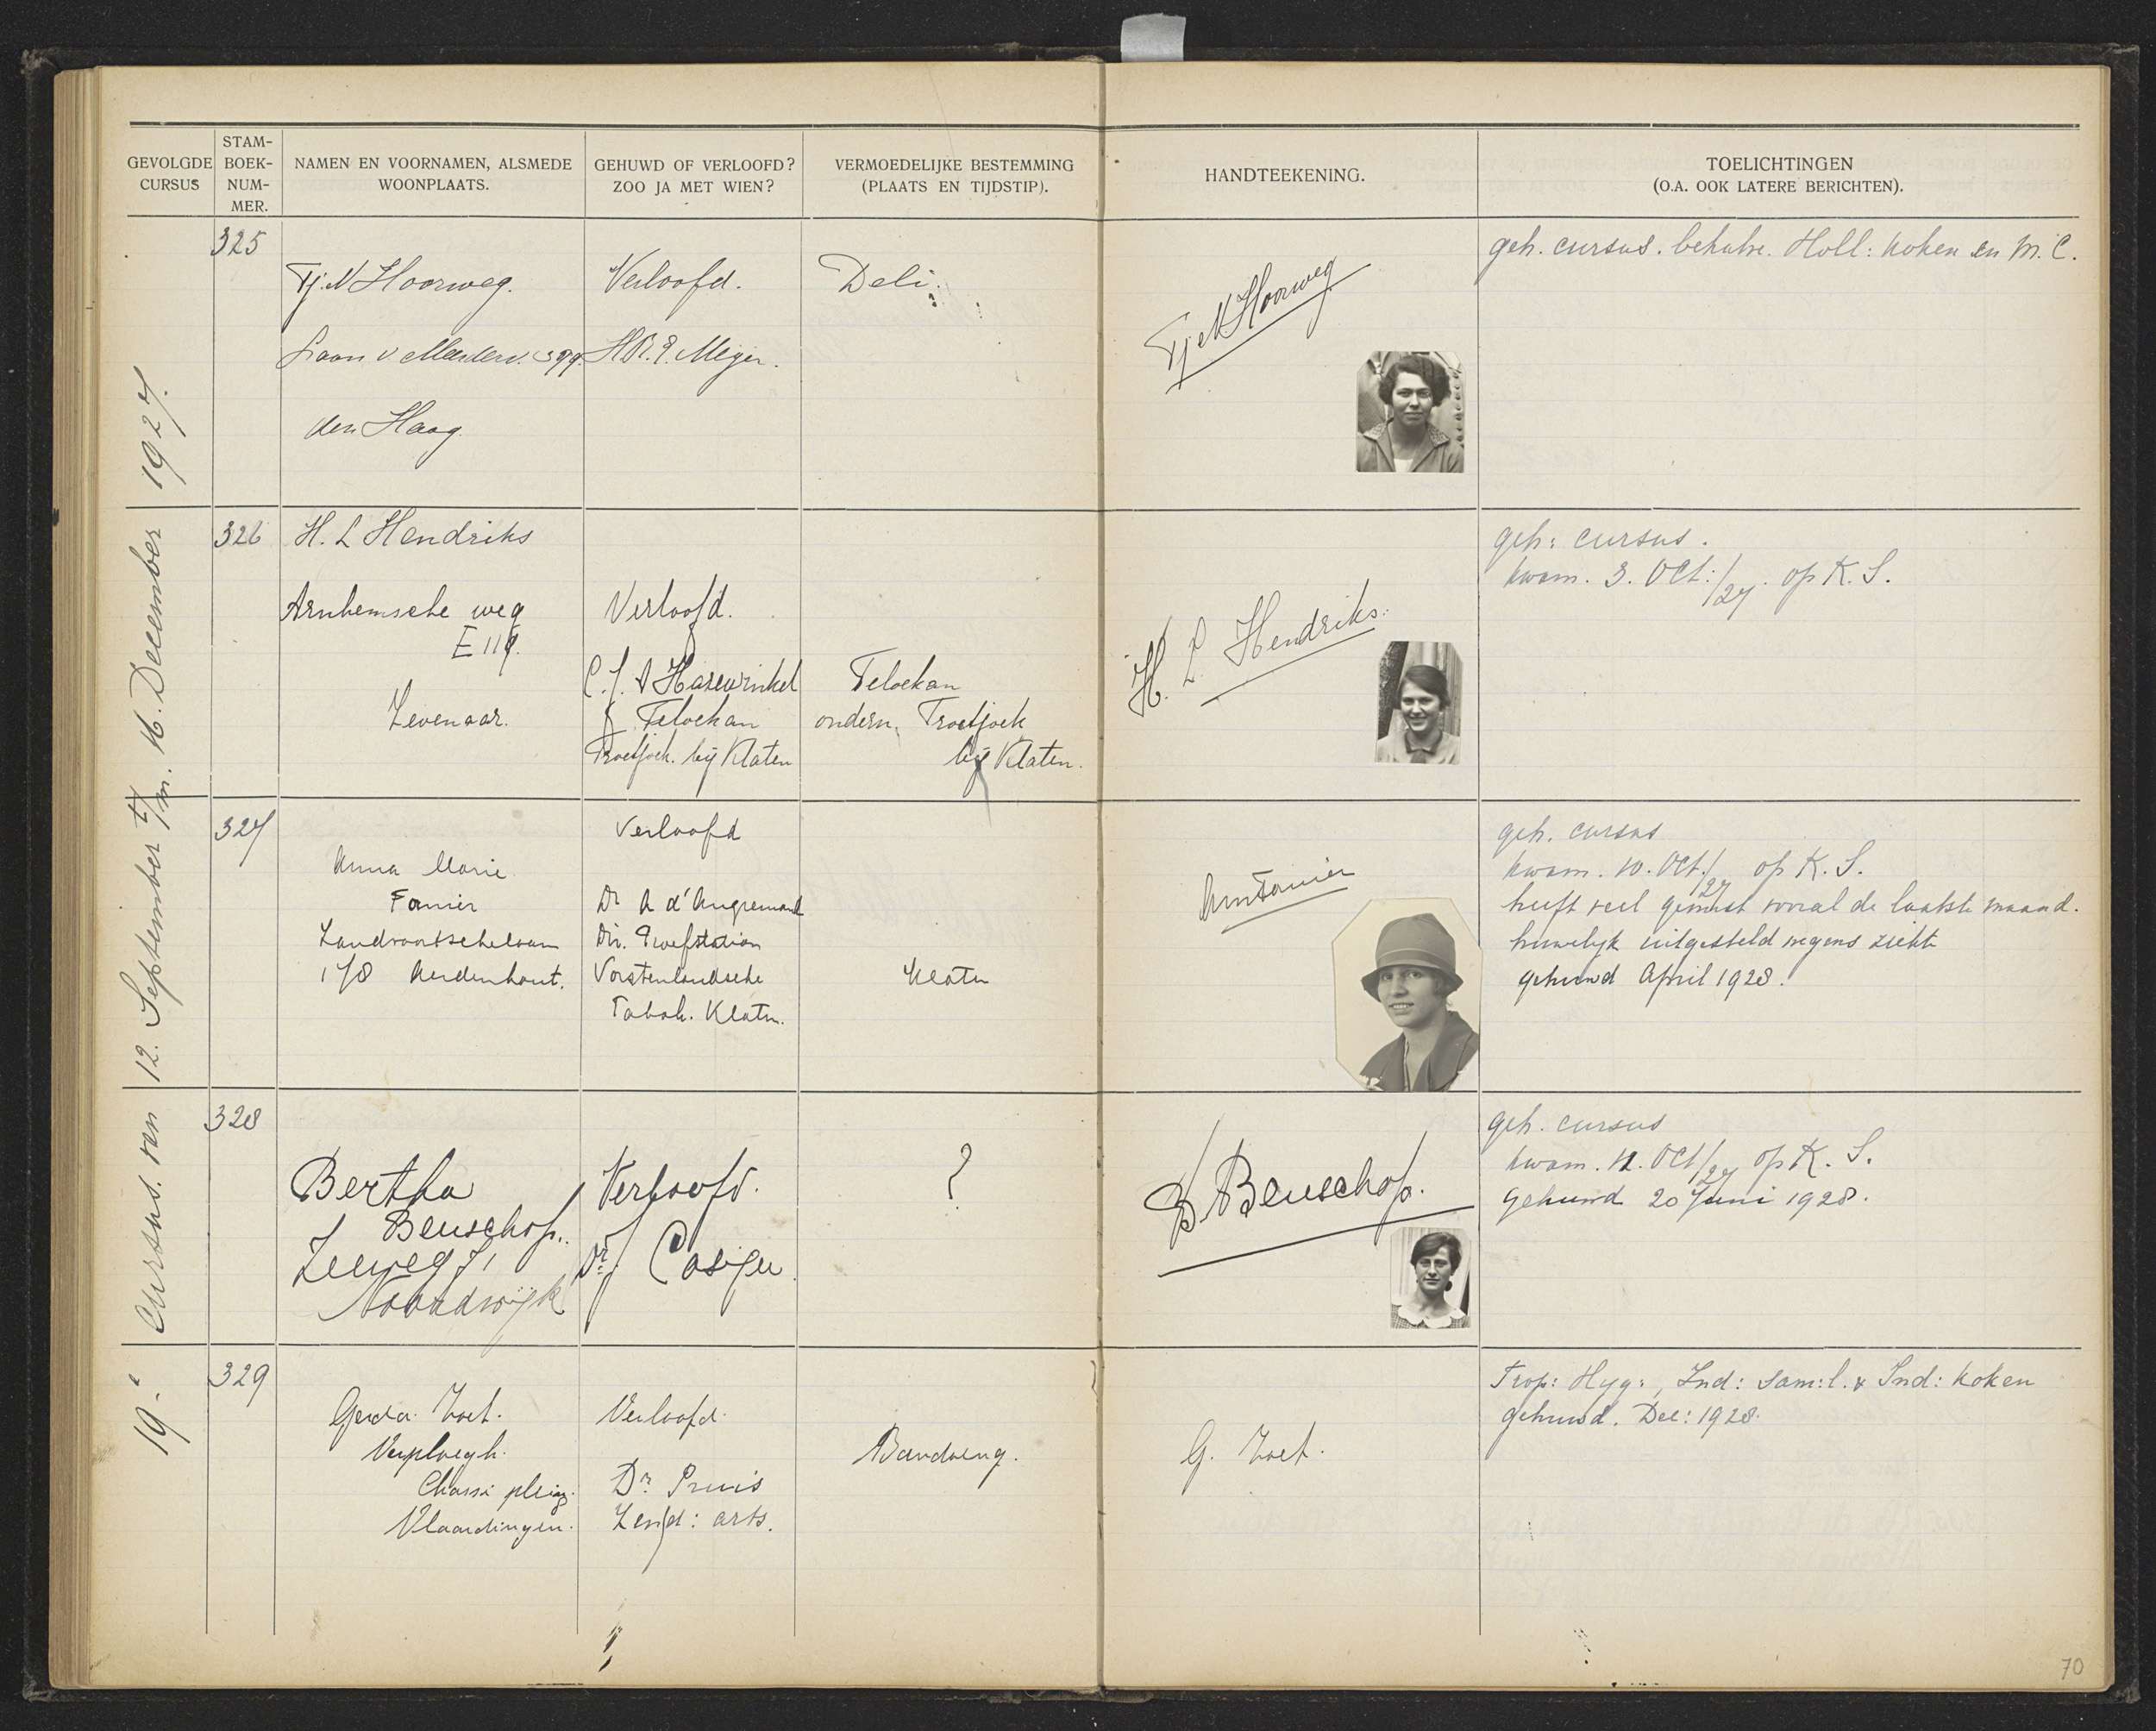 GEVOLGDE CURSUS
STAM-BOEK-NUM-MER.
NAMEN EN VOORNAMEN, ALSMEDE WOONPLAATS.
GEHUWD OF VERLOOFD? ZOO JA MET WIEN?
VERMOEDELIJKE BESTEMMING (PLAATS EN TIJDSTIP).
HANDTEEKENING.
TOELICHTINGEN (O.A. OOK LATERE BERICHTEN).
19e Cursus. van 12. September t/m. 16. December 1927.
325
Tj. N Hoorweg.
Laan v Meerderv. 399.
den Haag.
Verloofd.
Meyer.
Deli.
Tje N Hoorweg
geh. cursus. behalve. Holl: koken en M. C.
326
H. L Hendriks
Arnhemsche weg
E 119.
Zevenaar.
Verloofd.
C. J. A Hasewinkel
Telockan
Troetjoek. bij Klaten
Telockan
ondern. Troetjoek
bij Klaten.
H. L Hendriks.
geh: cursus.
kwam. 3. Oct:/27. op K. S.
327
Anna Marie
Fanier
178 Aerdenhout.
Verloofd
Dr A d'Angremond
Dir. Proefstation
Vorstenlandsche
Tabak. Klaten.
Klaten
geh. cursus
kwam. 10. Oct./27 op K. S.
heeft veel gemist vooral de laatste maand.
huwelijk uitgesteld wegens ziekte
gehuwd April 1928.
328
Bertha
Beuschop.
Zeeweg 71
Noordwijk
Verloofd.
Dr J
?
B. Beuschop.
geh. cursus
kwam. 11. Oct/27 op K. S.
gehuwd 20 Juni 1928.
329
Gerda Zoet.
Verploegh.
Chassé plein
Vlaardingen.
Verloofd.
Dr Pruis
Zend: arts.
Bandoeng.
G. Zoet.
Trop: Hyg:, Ind: sam:l. & Ind: koken
gehuwd. Dec: 1928.
70